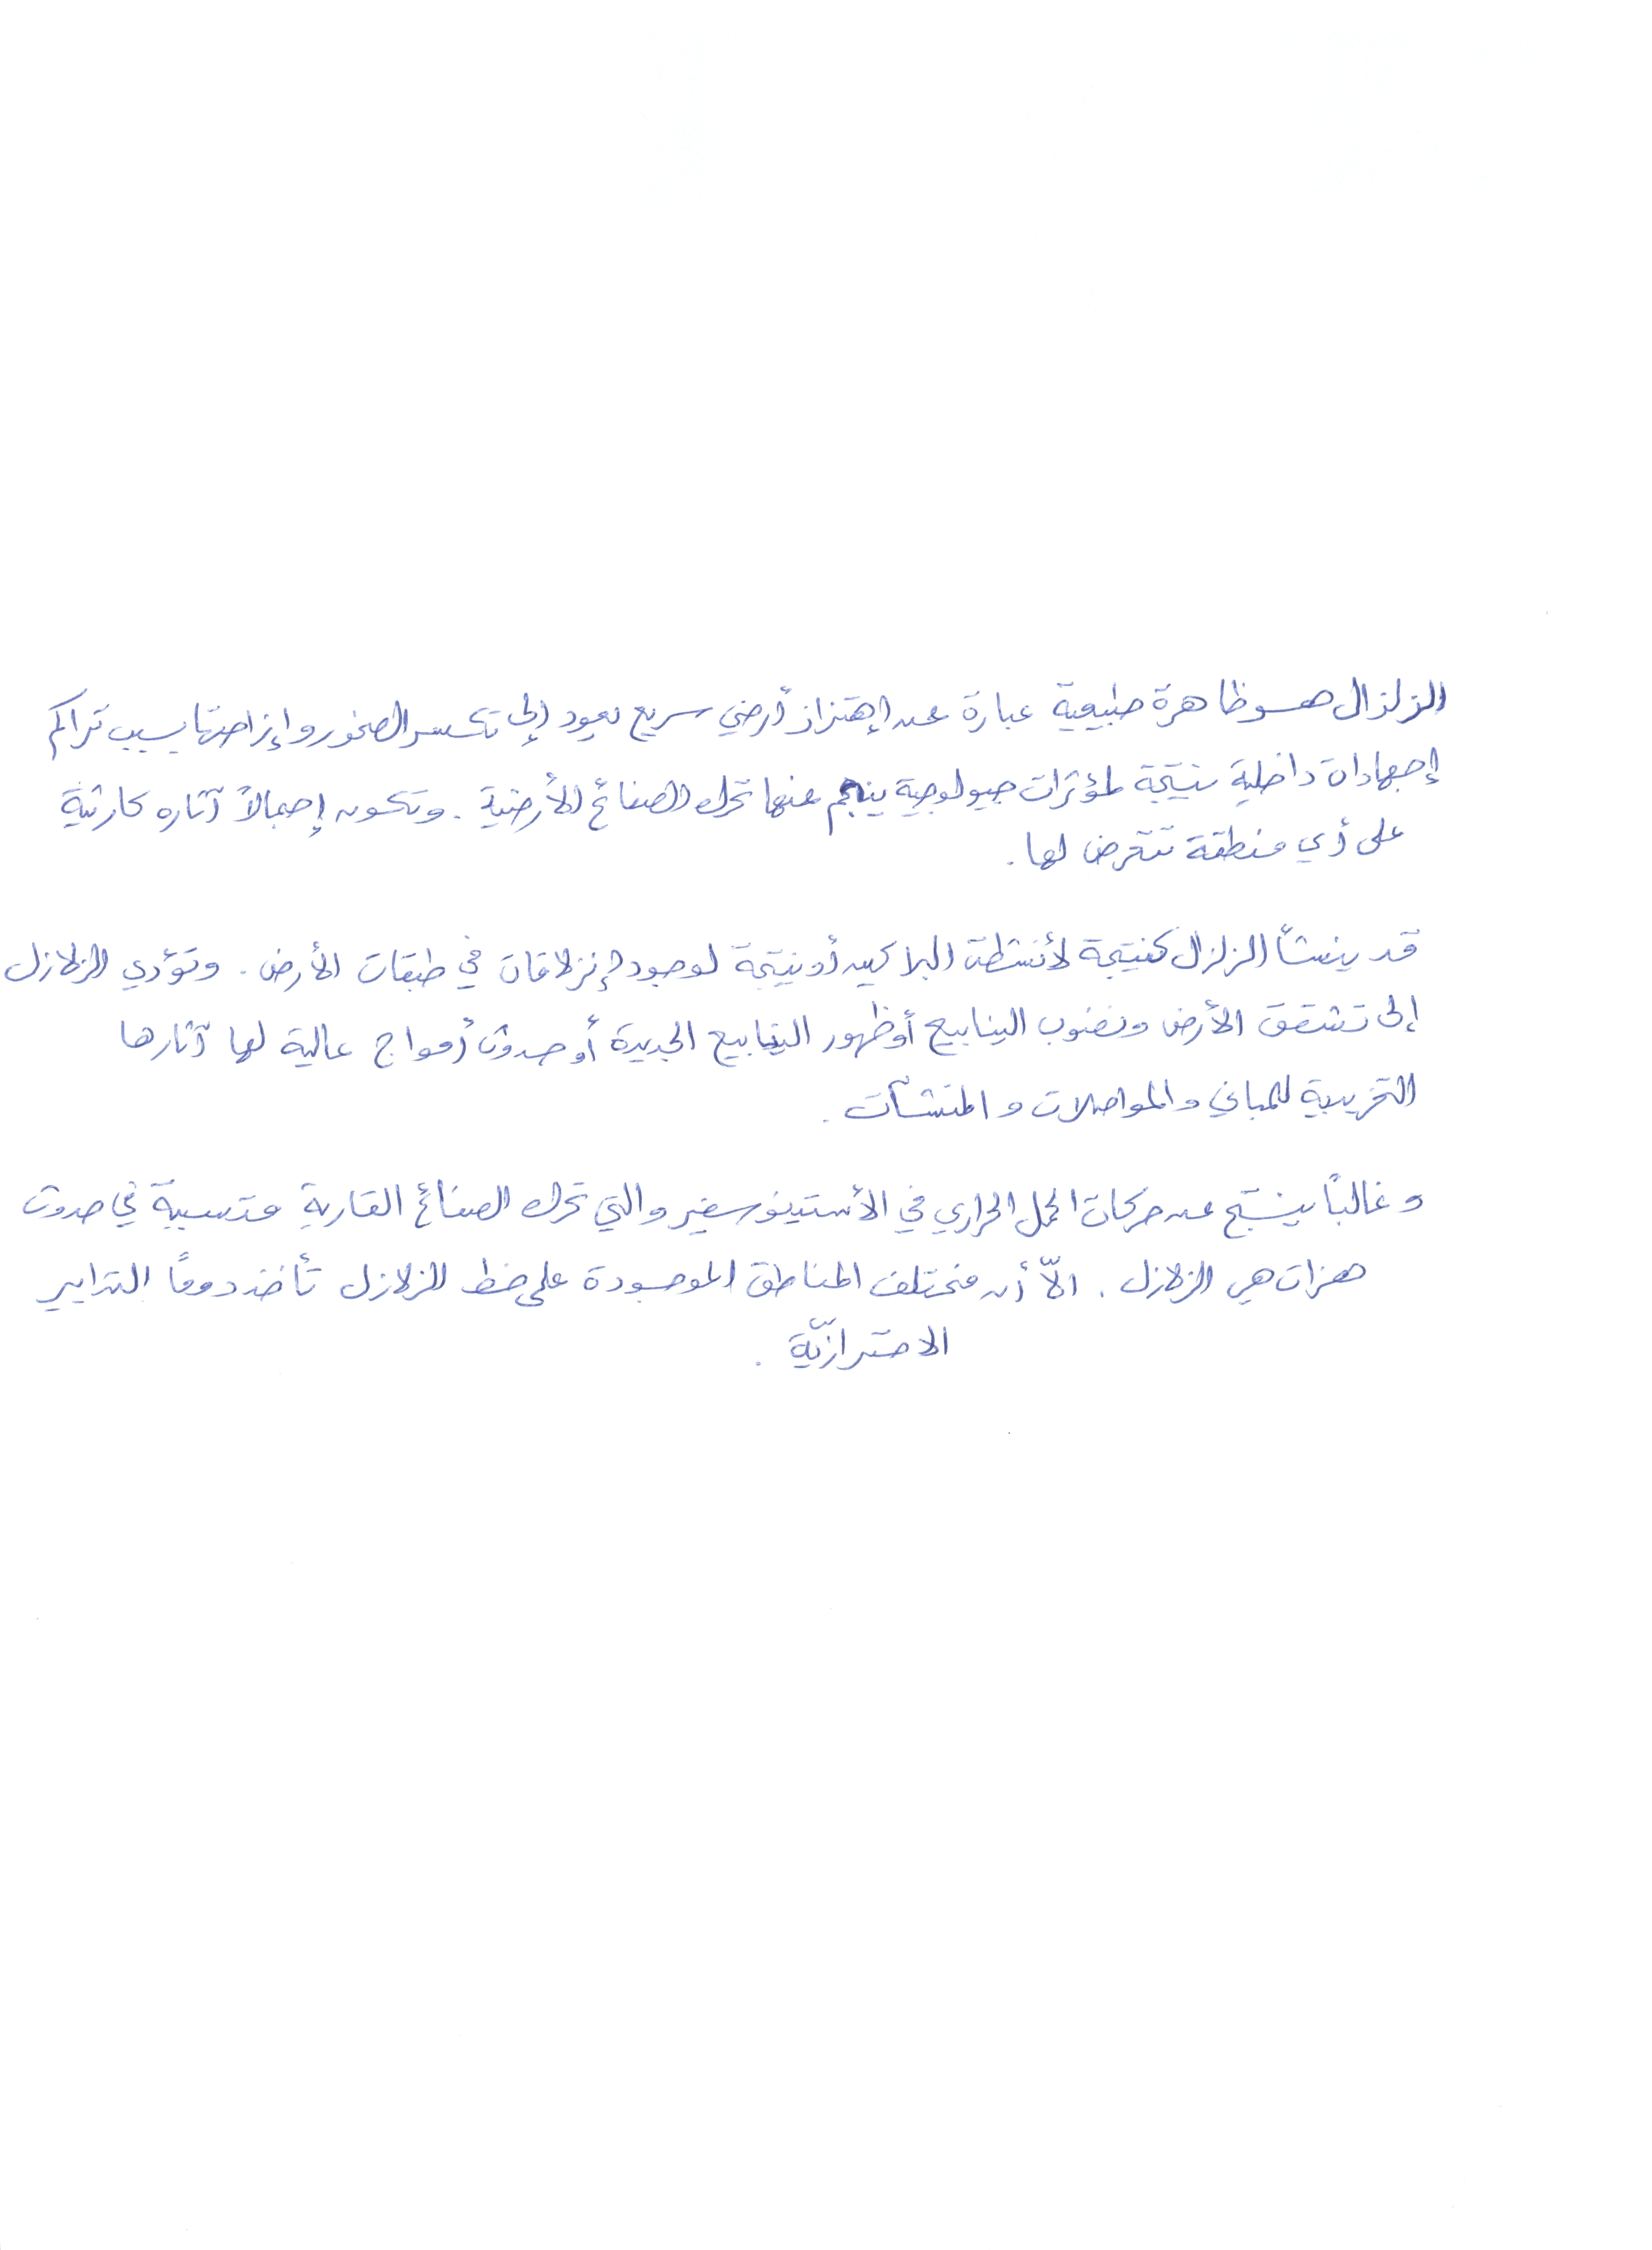 الزلزال هو ظاهرة طبيعية عبارة عن إهتزاز أرضي سريع يعود إلى تكسر الصخور وإزاحتها بسبب تراكم
إجهادات داخلية نتيجة لمؤثرات جيولوجية ينجم عنها تحرك الصفائح الأرضية. وتكون إجمالاً آثاره كارثية
على أي منطقة تتعرض لها.
قد ينشأ الزلزال كنتيجة لأنشطة البراكين أو نتيجة لوجود إنزلاقات في طبقات الأرض. وتؤدي الزلازل
إلى تشقق الأرض ونضوب الينابيع أو ظهور الينابيع الجديدة أو حدوث أمواج عالية لها آثارها
التخريبية للمباني والمواصلات والمنشآت.
وغالباً ينتج عن حركات الحمل الحراري في الأستينوسفير والتي تحرك الصفائح القارية متسببة في حدوث
هزات هي الزلازل. الاّ أن مختلف المناطق الموجودة على خط الزلازل تأخذ دوماً التدابير
الاحترازيّة.